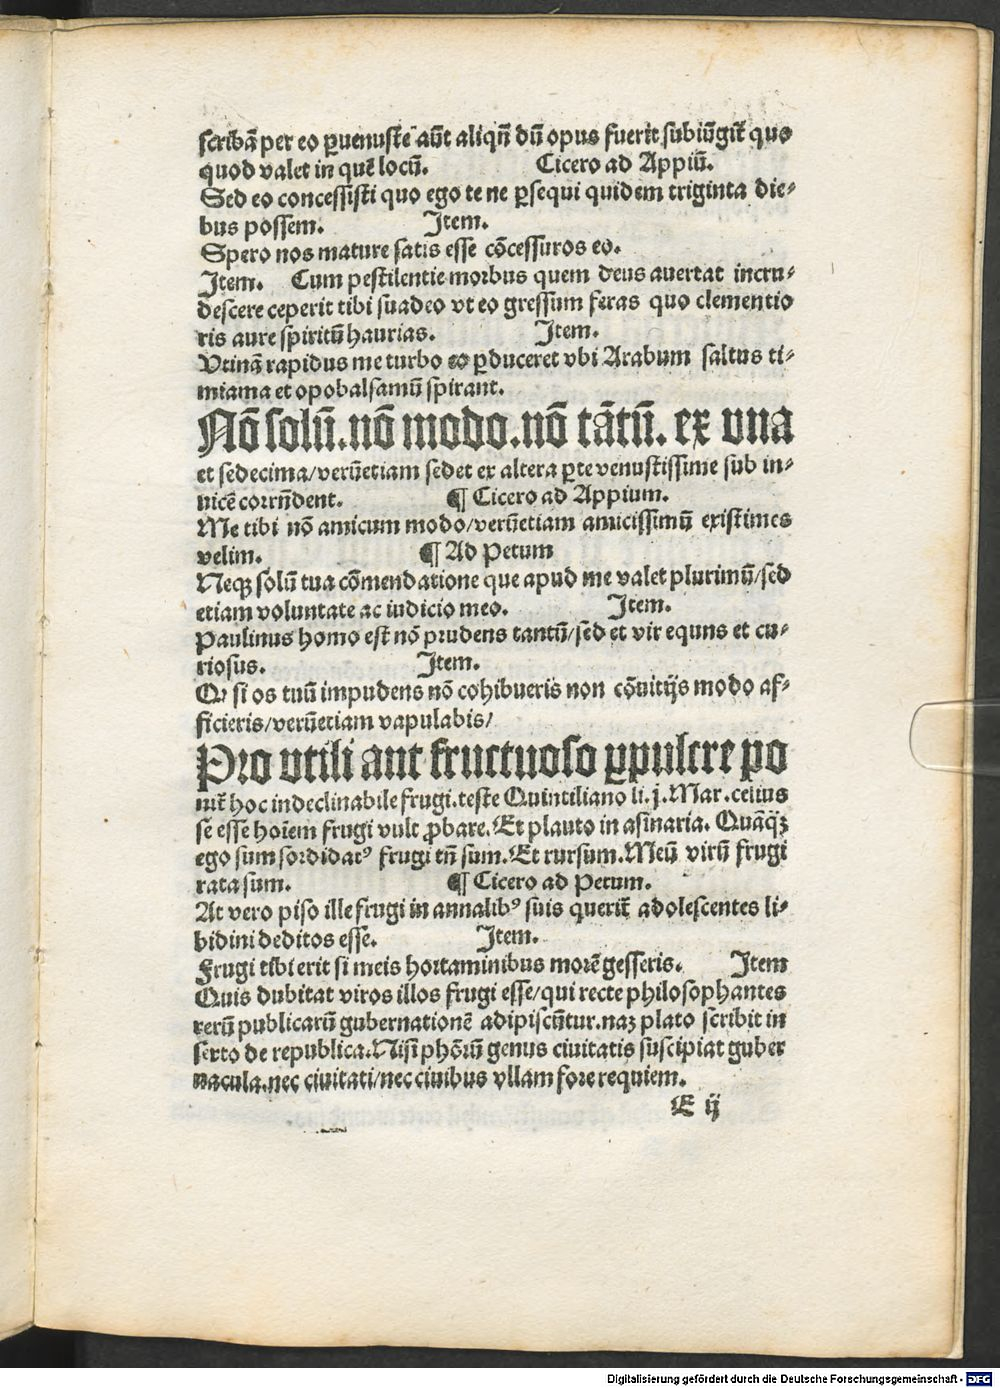 scribā per eo ꝑuenuste aūt aliqn̄ dū opus fuerit subiūgit᷑ quo
quod valet in quē locū. Cicero ad Appiū.
Sed eo concessisti quo ego te ne ꝑsequi quidem triginta die-
bus possem. Item.
Spero nos mature satis esse cōcessuros eo.
Item. Cum pestilentie morbus quem deus auertat incru-
descere ceperit tibi suadeo vt eo gressum feras quo clementio
ris aure spiritū haurias. Item.
Vtinā rapidus me turbo eo ꝑduceret vbi Arabum saltus ti-
miama et opobalsamū spirant.
Nō solū. nō modo. nō tātū. ex vna
et sedecima/verūetiam sedet ex altera ꝑte venustissime sub in-
uicē corrn̄dent. ¶ Cicero ad Appium.
Me tibi nō amicum modo/verūetiam amicissimū existimes
velim. ¶ Ad Petum
Neqꝫ solū tua cōmendatione que apud me valet plurimū/sed
etiam voluntate ac iudicio meo. Item.
Paulinus homo est nō prudens tantū/sed et vir equus et cu-
riosus. Item.
Qꝙ si os tuū impudens nō cohibueris non cōuitijs modo af-
ficieris/verūetiam vapulabis/
Pro vtili aut fructuoso ꝑpulcre po
nit᷑ hoc indeclinabile frugi. teste Quintiliano li. j. Mar. celius
se esse hoīem frugi vult ꝓbare. Et plauto in asinaria. Quāqꝫ
ego sum sordidatꝰ frugi tn̄ sum. Et rursum. Meū virū frugi
rata sum. ¶ Cicero ad Petum.
At vero piso ille frugi in annalibꝰ suis querit᷑ adolescentes li-
bidini deditos esse. Item.
Frugi tibi erit si meis hortaminibus morē gesseris. Item
Quis dubitat viros illos frugi esse/qui recte philosophantes
rerū publicarū gubernationē adipiscūtur. naꝫ plato scribit in
serto de republica. Nisi phōrū genus ciuitatis suscipiat guber
nacula. nec ciuitati/nec ciuibus vllam fore requiem.
E ij
Digitalisierung gefördert durch die Deutsche Forschungsgemeinschaft - DFG